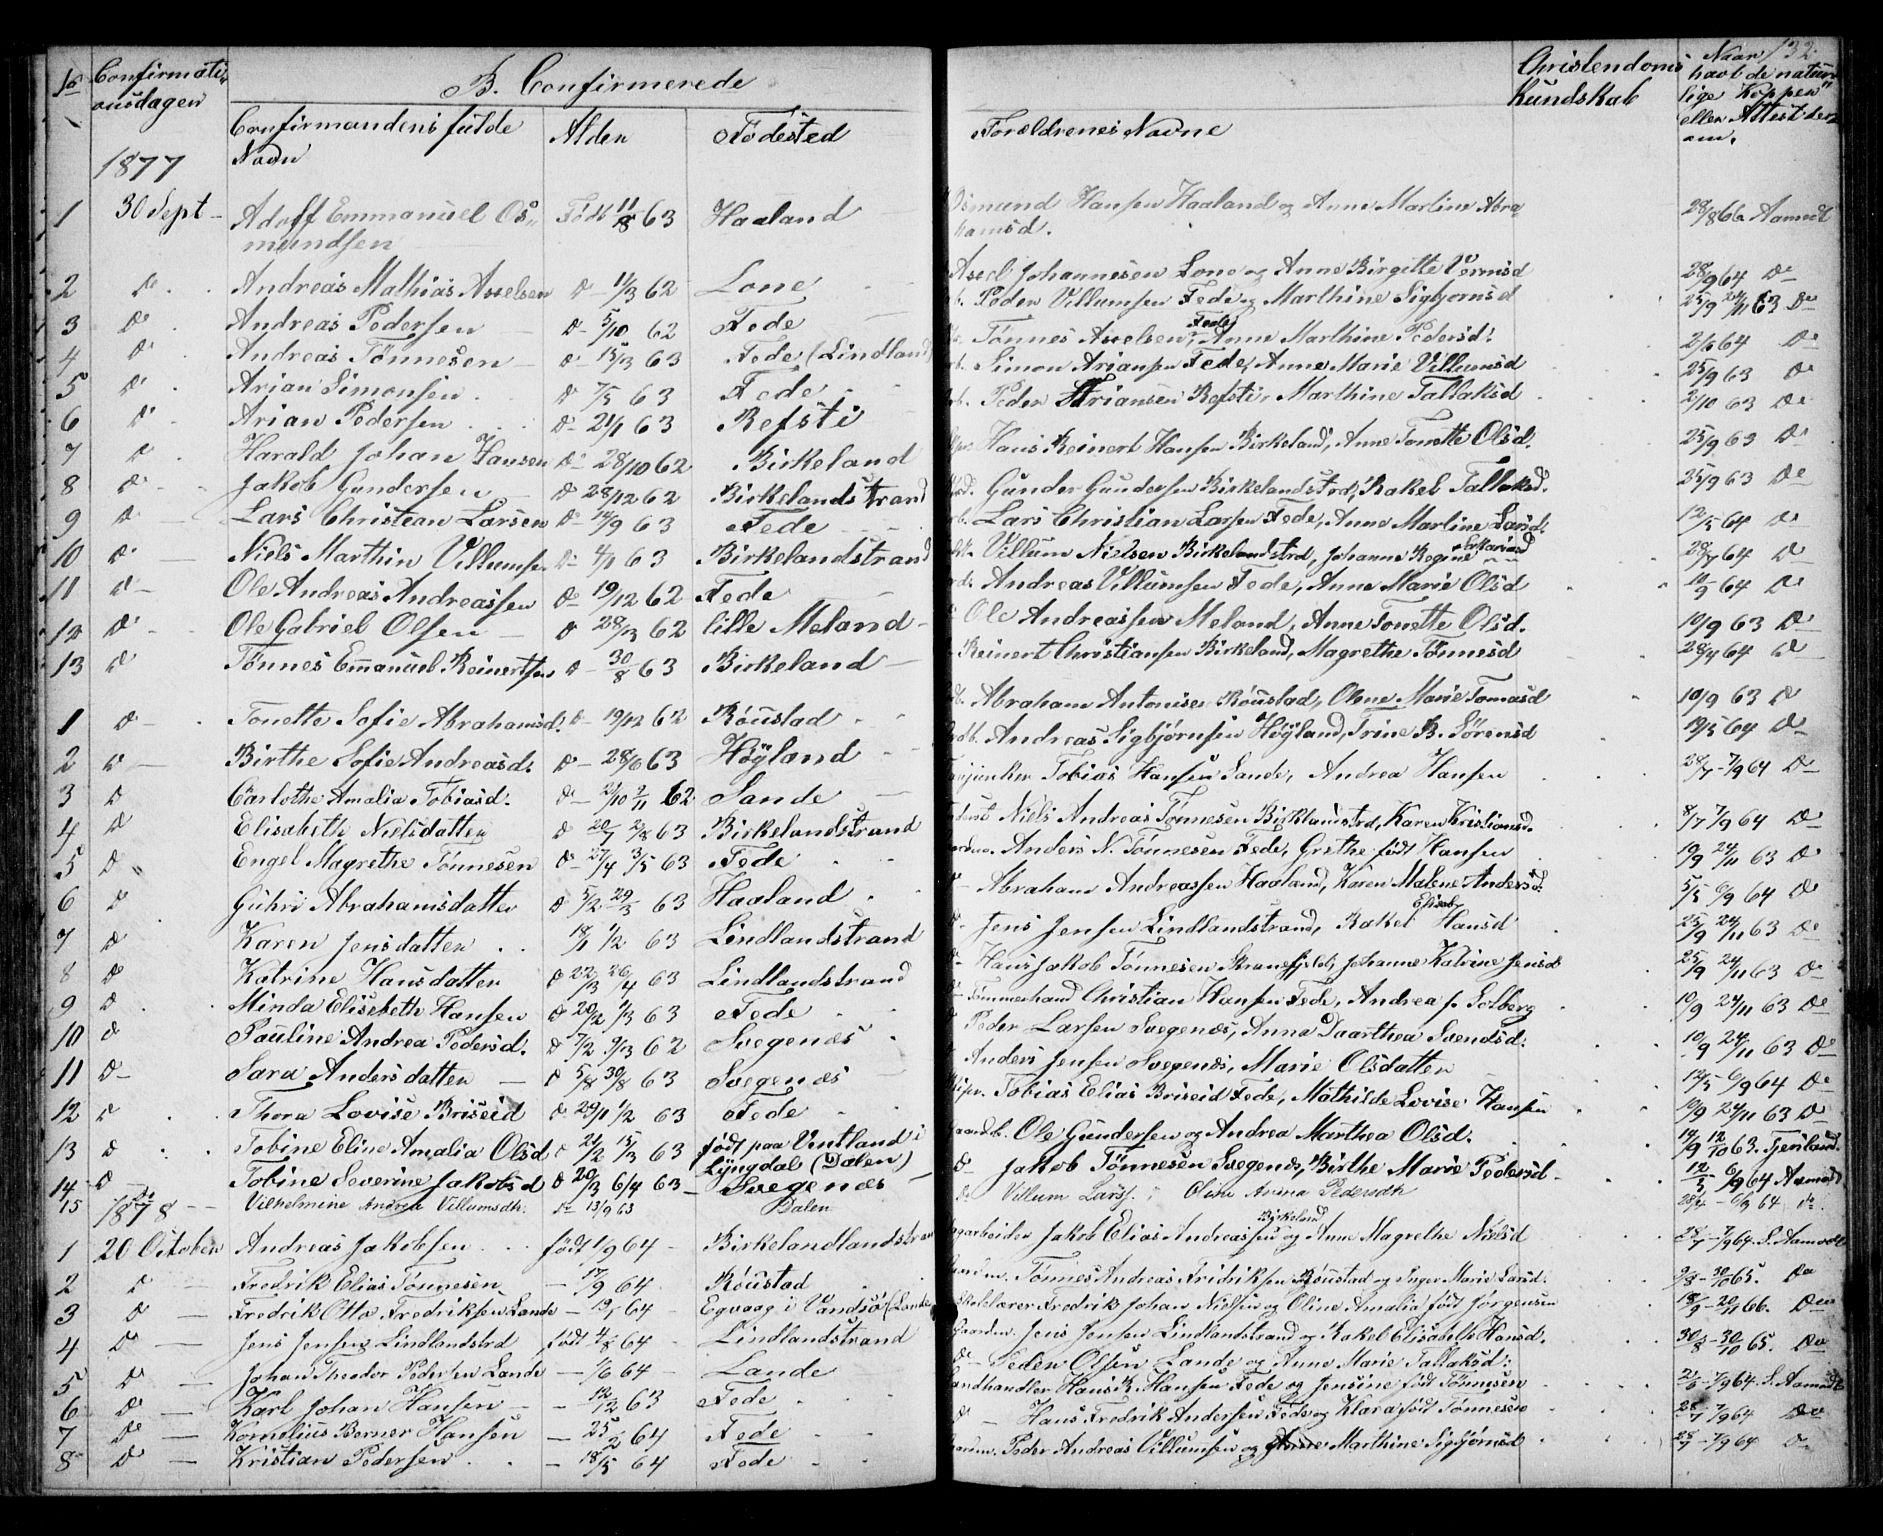 132.
No Confirmati- onsdagen B. Confirmerede Christendoms Kundskab Naar havt de natur- lige Kopper eller Attest der- om.
Confirmandens fulde Navn Alder Fødested Forældrenes Navne
1877
1 30 Sept - Adolf Emmanuel Os- Født 11/8 63 Haaland Osmund Hansen Haaland og Anne Martine Abra- 28/8 66. Aamodt
mundsen hamsd.
2 Do Andreas Mathias Axelsen Do - 11/3 62 Lone Axel Johannesen Lone og Anne Birgitte 28/9 64 Do
3 Do Andreas Pedersen Do - 5/10 62 Fede Peder Villumsen Fede og Marthine Sigbjornsd 25/9 24/11 63 Do
4 Do Andreas Tønnesen Do - 15/3 63 Fede (Lindland) Tønnes Axelsen Fede, Anne Marthine Pedersd. 2/6 64 Do
5 Do Arian Simonsen Do 7/5 63 Fede Simon Ariansen Fede, Anne Marie Villumsd 25/9 63 Do
6 Do Arian Pedersen Do - 21/1 63 Refsti Peder Ariansen Refsti, Marthine Tallaksd 2/10 63 Do
7 Do Harald Johan Hansen Do 28/10 62 Birkeland Hans Reinert Hansen Birkeland, Anne Tonette Olsd. 25/9 63 Do
8 Do Jakob Gundersen Do 28/12 62 Birkelandstrand Gunder Gundersen Birkelandstrd, Rakel Tallaksd. 25/9 63 Do
9 Do Lars Christean Larsen Do - 14/9 63 Fede Lars Christian Larsen Fede, Anne Martine Larsd. 12/5 64 Do
10 Do Niels Marthin Villumsen Do 4/1 63 Birkelandstrand Villum Nielsen Birkelandstrd, Johanne Regine 28/7 64 Do
11 Do Ole Andreas Andreassen Do 19/12 62 Fede Andreas Villumsen Fede, Anne Marie Olsd 10/9 64 Do
12 Do Ole Gabriel Olsen Do 28/3 62 lille Meland Ole Andreassen Meland, Anne Tonette Olsd. 10/9 63 Do
13 Do Tønnes Emanuel Reinertsen Do - 30/8 63 Birkeland Reinert Christiansen Birkeland, Magrethe Tønnesd 28/4 64 Do
1 Do Tonette Sofie Abrahamsd. Do - 19/12 62 Røustad Abraham Antonisen Røustad, Olene Marie Tomasd 10/9 63 Do
2 Do Birthe Sofie Andreasd. Do - 28/6 63 Høyland Andreas Sigbjørnsen Høyland, Trine B. Sørensd 19/5 64 Do
3 Do Carlothe Amalia Tobiasd. Do - 2/10 9/11 62 Sande Tobias Hansen Sande, Andrea Hansen 28/7 - 7/9 64 Do
4 Do Elisabeth Nielsdatter Do 20/7 2/8 63 Birkelandstrand Niels Andreas Tønnesen Birklandstrd, Karen Kristiansd. 8/7 7/9 64 Do
5 Do Engel Magrethe Tønnesen Do 27/4 3/5 63 Fede Anders N. Tønnesen Fede, Grethe født Hansen 19/9 24/11 63 Do
6 Do Guhri Abrahamsdatter Do 5/2 - 29/3 63 Haaland Abraham Andreassen Haaland, Karen Malene Andersd. 5/5 6/9 64 Do
7 Do Karen Jensdatter 18/1 1/2 63 Lindlandstrand Jens Jensen Lindlandstrand, Rakel Elisab. Hansd 25/9 24/11 63 Do
8 Do Katrine Hansdatter Do 22/3 26/4 63 Lindlandstrand Hans Jakob Tønnesen Johanne Katrine Jensd 25/9 24/11 63 Do
9 Do Minda Elisebeth Hansen Do 20/2 1/3 63 Fede Tømmerhand Christian Hansen Fede, Andrea f. Solberg 10/9 24/11 63 Do
10 Do Pauline Andrea Pedersd. Do 7/2 9/3 62 Svegenæs Peder Larsen Svegenæs, Anna Daarthea Svendsd. 10/9 24/11 63 Do
11 Do Sara Andersdatter Do 5/8 30/8 63 Svegenæs Anders Jensen Svegenæs, Marie Olsdatter 12/5 6/9 64 Do
12 Do Thora Lovise Briseid Do 20/1 1/2 63 Fede Tobias Elias Briseid Fede, Mathilde Lovise Hansen 10/9 24/11 63 Do
13 Do Tobine Eline Amalia Olsd Do 21/2 15/3 63 født paa Vintland i Lyngdal (Dalen) Ole Gundersen og Andrea Marthea Olsd. 14/9 12/10 63.
14 Do Tobine Severine Jakobsd Do 20/3 6/4 63 - Svegenæs Do Jakob Tønnesen Svegenæs, Birthe Marie Pedersd 12/5 6/9 64 Aamodt
15 Vilhelmine Andrea Villumsdtr. Do 13/9 63 Dalen Do Villum Larss. Oline Anna Pedersdtr 28/4 - 6/9 64 Do.
1878
1 20 October Andreas Jakobsen født 1/9 64 Birkelandlandstrand Jakob Elias Andreassen Birkeland og Anne Magrethe Nielsd 28/7 - 7/9 64. S. Aamodt
2 Do Fredrik Elias Tønnesen - 17/9 64 Røustad Tønnes Andreas Fridriksen Røustad og Inger Marie Larsd. 9/8 - 30/10 65. Do
3 Do Fredrik Otto Fredriksen Lande - 19/1 64 Egvaag i Vandsø (Lande Skolelærer Fredrik Johan Nielsen og Oline Amalia født Jørgensen 18/9 - 20/11 66. Do
4 Do Jens Jensen Lindlandstrd født 4/8 64 Lindlandstrand Gaardm. Jens Jensen Lindlandstrand og Rakel Elisabeth Hansd. 30/8 - 30/10 65. Do
5 Do Johan Theodor Pedersen Lande - 1/6 64 - Lande Do Peder Olsen Lande og Anne Marie Tallaksd. 2/6 - 7/9 64. S. Aamodt
6 Do Karl Johan Hansen - 12/12 63 Fede Landhandler Hans K. Hansen Fede og Jensine født Tønnesen 28/7 7/9 64 Do
7 Do Kornelius Berner Hansen - 25/2 64 Fede Do Hans Fredrik Andersen Fede og Klara født Tønnesen 28/7 - 7/9 64 Do
8 Do Kristian Pedersen - 18/5 64 Fede Gaardm. Peder Andreas Villumsen og Marthine Sigbjørnsd